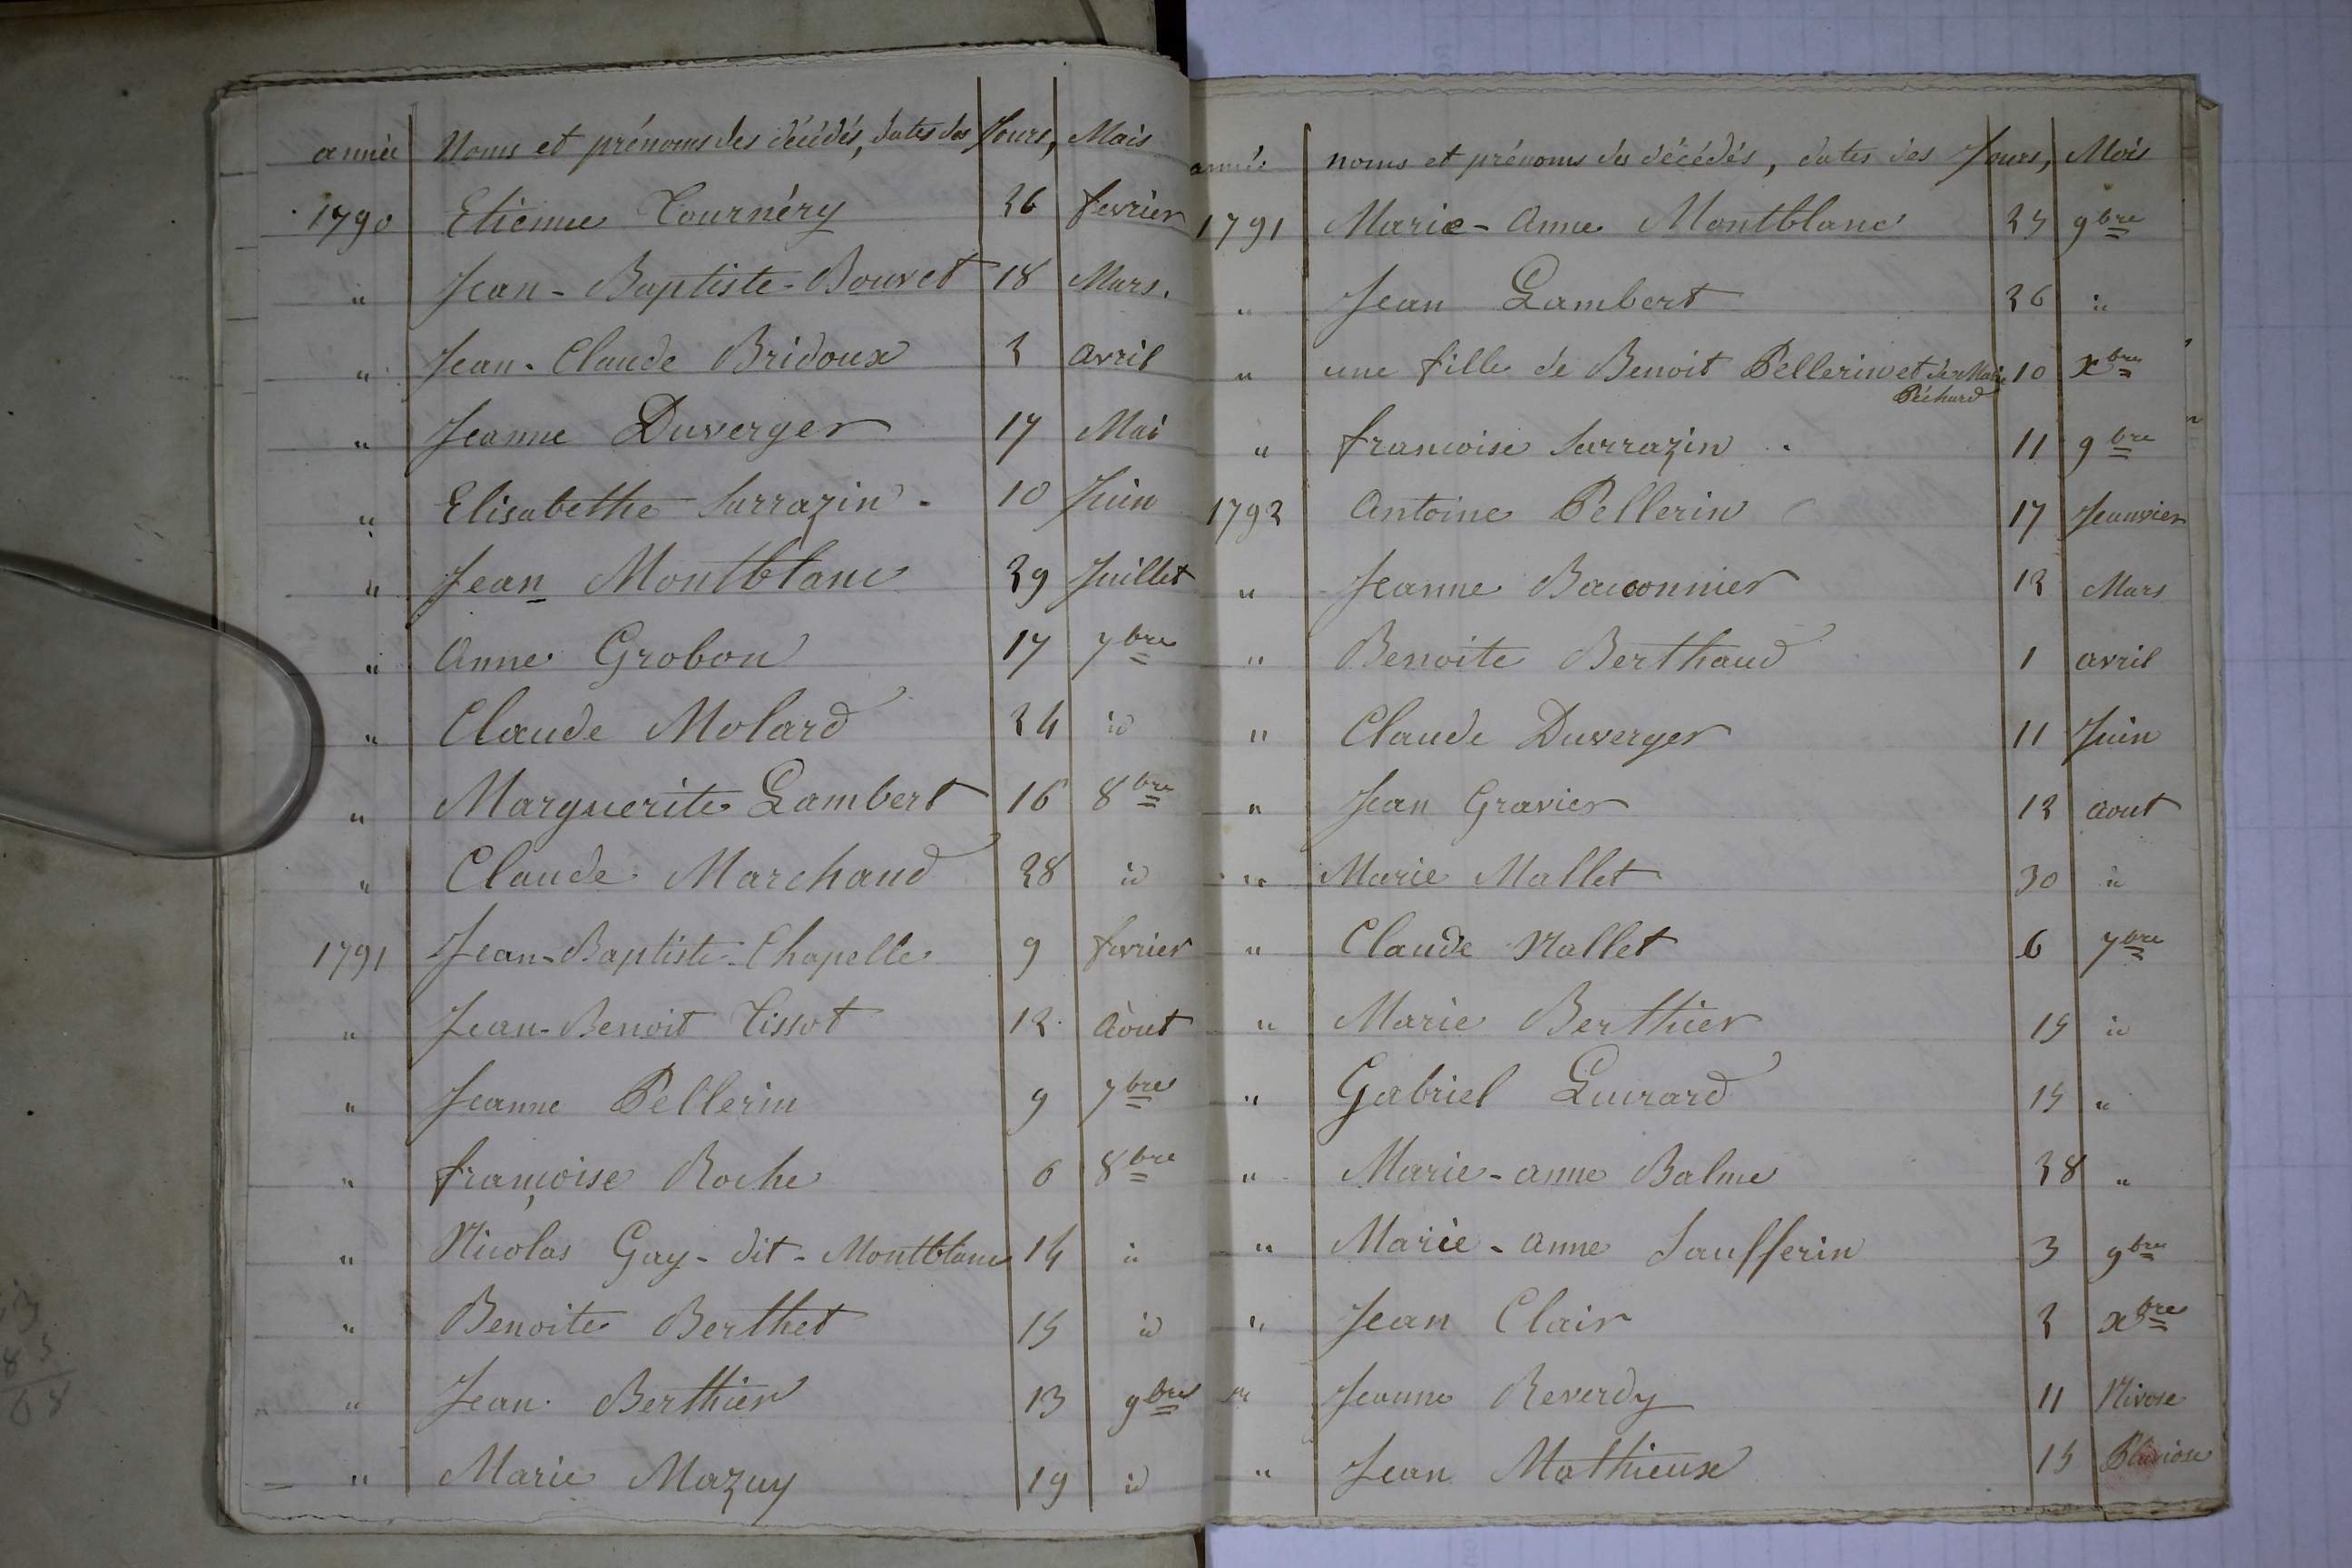 année Noms et prénoms des décédés, dates des Jours, Mois
1790 Etienne Tournéry 26 fevrier
" Jean-Baptiste-Bouvet 18 Mars.
" Jean-Claude Bridoux 2 avril
" Jeanne Duverger 17 Mai
" Elisabethe Sarrazin 10 Juin
" Jean Montblanc 29 Juillet
" Anne Grobon 17 7bre
" Claude Molard 24 id
" Marguerite Lambert 16 8bre
" Claude Marchand 28 id
1791 Jean-Baptiste-Chapelle 9 fevrier
" Jean-Benoit Tissot 12 Aout
" Jeanne Pellerin 9 7bre
" françoise Roche 6 8bre
" Nicolas Gay-dit-Montblanc 14 "
" Benoite Berthet 15 id
" Jean Berthier 13 9bre
" Marie Mazuy 19 id
année noms et prénoms des décédés, dates des Jours, Mois
1791 Marie-Anne Montblanc 25 9bre
" Jean Lambert 26 "
" une fille de Benoit Pellerin et de Marie 10 xbre
Péchard
" francoise Sarrazin . 11 9bre
1792 Antoine Pellerin 17 Jeanvier
" Jeanne Bacconnier 12 Mars
" Benoite Berthaud 1 avril
" Claude Duverger 11 Juin
" Jean Gravier 12 aout
" Marie Mallet 30 "
" Claude Nallet 6 7bre
" Marie Berthier 15 id
" Gabriel Luirard 15 "
" Marie-anne Balme 28 "
" Marie-Anne Saufferin 3 9bre
" Jean Clair 2 xbre
" Jeanne Reverdy 11 Nivose
" Jean Mathieux 15 Pluviose